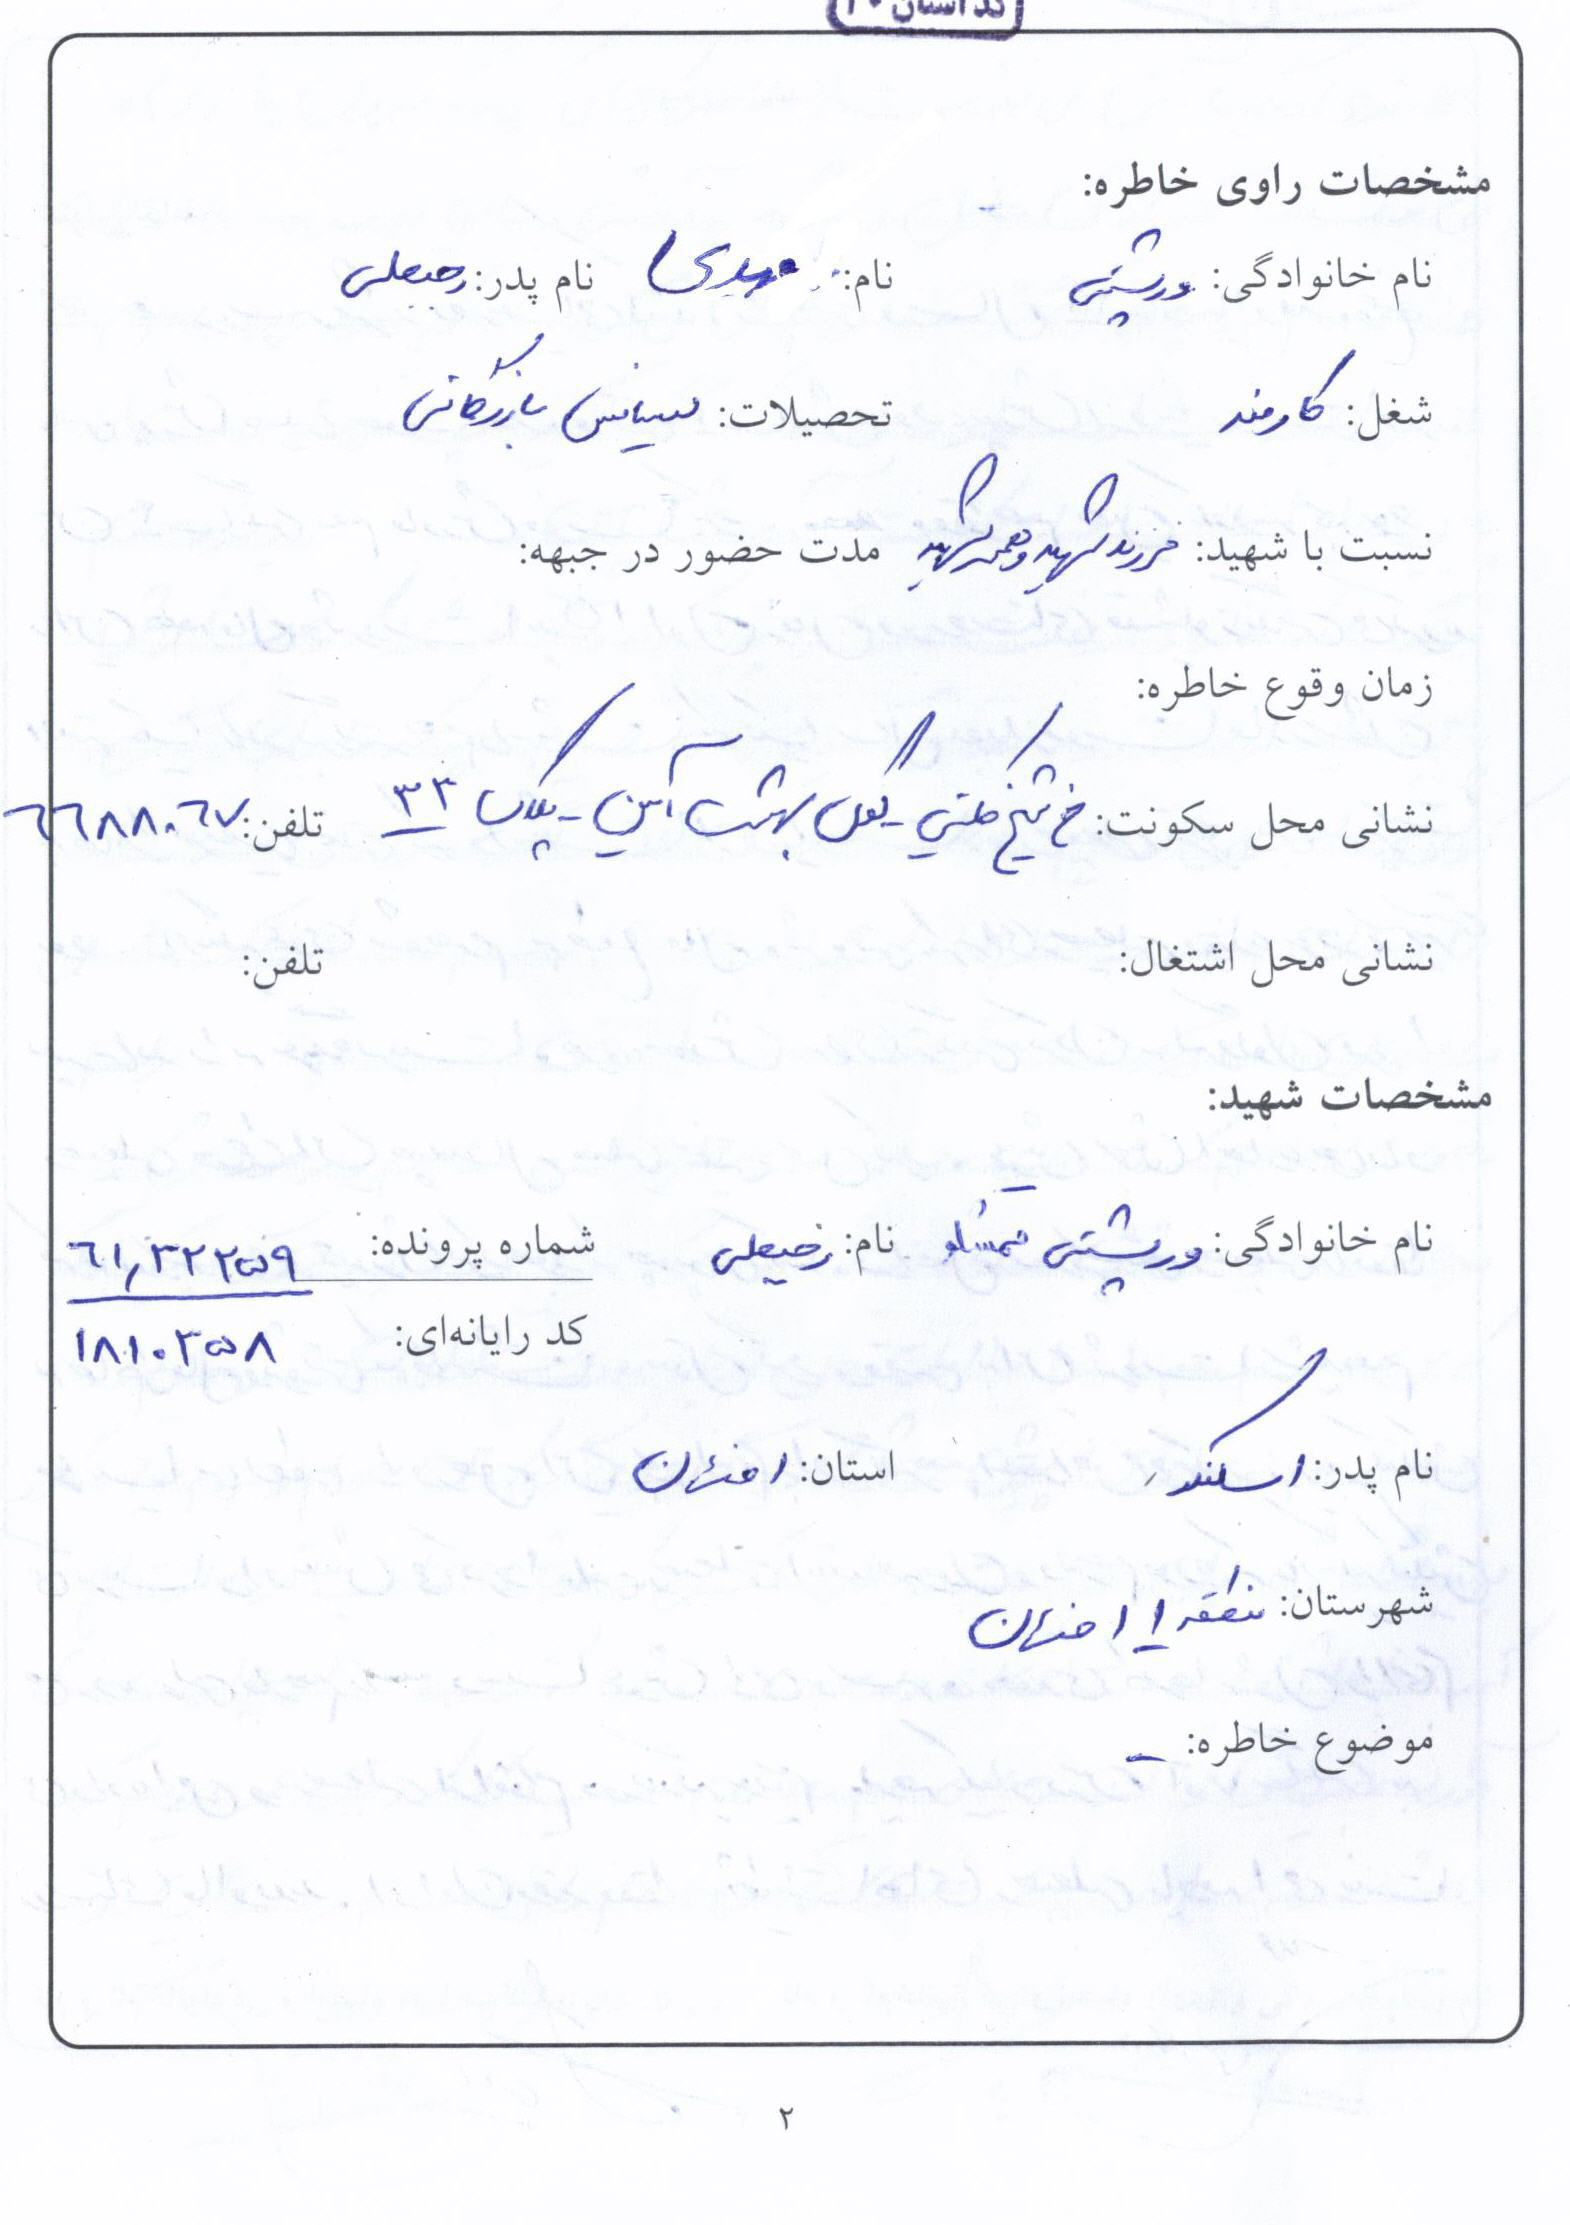 کد استان ۲۰
مشخصات راوی خاطره:
نام خانوادگی: ورپشتی نام: مهدی نام پدر: رجبعلی
شغل: کارمند تحصیلات: لیسانس بازرگانی
نسبت با شهید: فرزند شهید و همسر شهید مدت حضور در جبهه:
زمان وقوع خاطره:
نشانی محل سکونت: خ شیخ طوسی - بهشت آئین - پلاک ۳۳ تلفن: ۶۶۸۸۰۶۷
نشانی محل اشتغال: تلفن:
مشخصات شهید:
نام خانوادگی: ورپشتی نام: رجبعلی شماره پرونده: ۶۱٫۳۲۲۵۹
کد رایانه‌ای: ۱۸۱۰۲۵۸
نام پدر: اسکندر استان: اصفهان
شهرستان: منطقه ۱ اصفهان
موضوع خاطره: –
۲